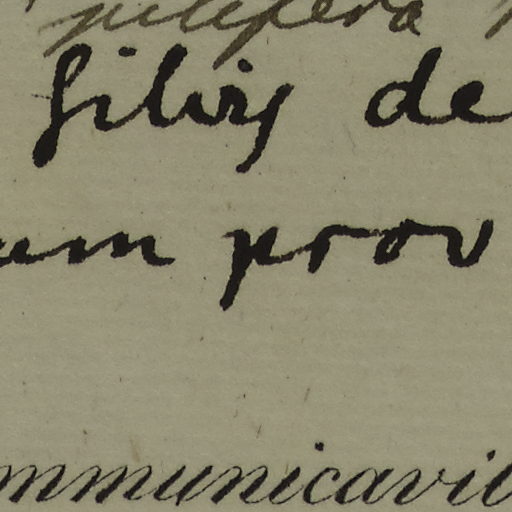 pilifera
silvis de
um prov
mmunicavit